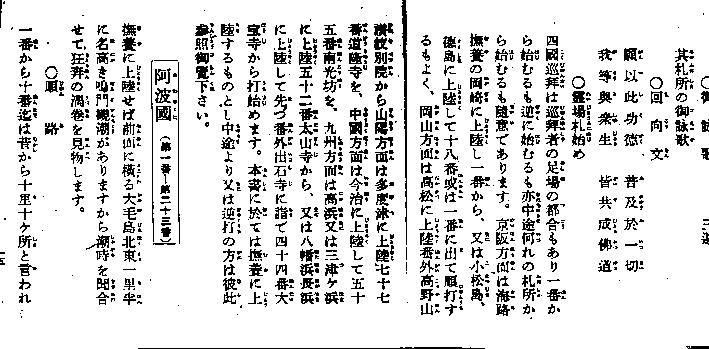 ○御詠歌 三遍
其札所の御詠歌
○回向文
願以此功徳 普及於一切
我等與衆生 皆共成佛道
○靈場札始め
四國巡拜は巡拜者の足場の都合もあり一番か
ら始むるも逆に始むるも亦中途何れの札所か
ら始むるも隨意であります。京阪方面は海路
撫養の岡崎に上陸し一番から、又は小松島、
徳島に上陸して十八番或は一番に出て順打す
るもよく、岡山方面は高松に上陸番外高野山
讃岐別院から山陽方面は多度津に上陸七十七
番道隆寺を、中國方面は今治に上陸して五十
五番南光坊を、九州方面は高浜又は三津ヶ浜
に上陸五十二番太山寺から、又は八幡浜長浜
に上陸して先づ番外出石寺に詣で四十四番大
寳寺から打始めます。本書に於ては撫養に上
陸するものとし中途より又は逆打の方は彼此
參照御覽下さい。
阿波國 (第一番—第二十三番)
撫養に上陸せば前面に横る大毛島北東一里半
に名高き鳴門觀潮がありますから潮時を聞合
せて狂奔の渦巻を見物します。
○順路
一番から十番迄は昔から十里十ヶ所と言われ